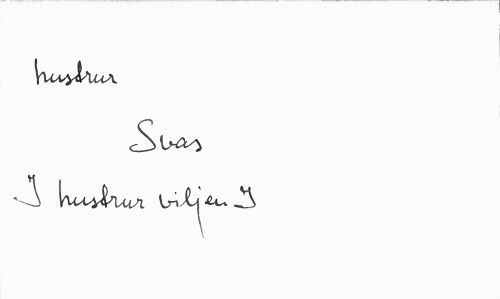 hustrur
Svas
I hustrur viljen I